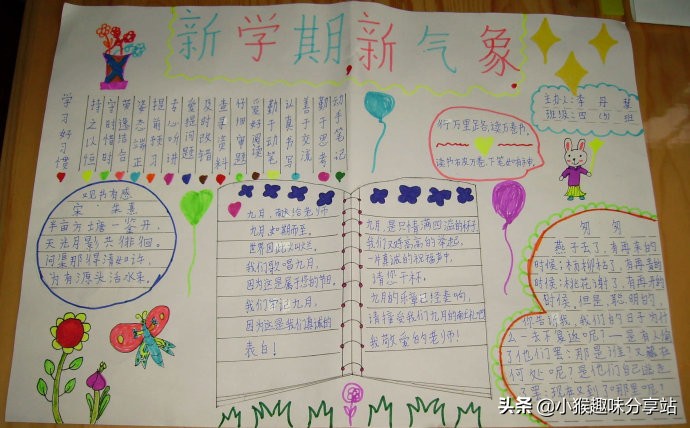 新学期新气象
主办:李丹慧
班级:四(6)班
学习好习惯
持之以恒
守时惜时
姿态端正
提前预习
专心听讲
爱提问题
及时改错
查找资料
仔细审题
爱好阅读
勤于动笔
认真书写
善于交流
勤于思考
动手笔记
行万里路,读万卷书。
读书破万卷,下笔如有神。
观书有感
宋:朱熹
半亩方塘一鉴开,
天光月影共徘徊。
问渠那得清如许,
为有源头活水来。
九月,献给老师
九月,如期而至。
世界因此
我们歌唱九月,
因为这是属于您的节日。
我们牢记九月,
因为这是我们真诚的
表白!
九月,是只情满四溢的杯子,
我们双手高高的举起,
一片真诚的祝福声中,
请你干杯。
九月的乐章已经奏响,
请接受我们九月的献礼吧
我敬爱的老师!
匆匆
燕子去了,有再来的
时候;杨柳枯了,有再青的
时候;桃花谢了,有再开的
时候。但是,聪明的,
你告诉我,我们的日子为什
么一去不复返呢?——是有人偷
了他们罢:那是谁?又藏在
何处呢?是他们自己逃走
了罢:现在又到了哪里呢?
头条@小猴趣味分享站